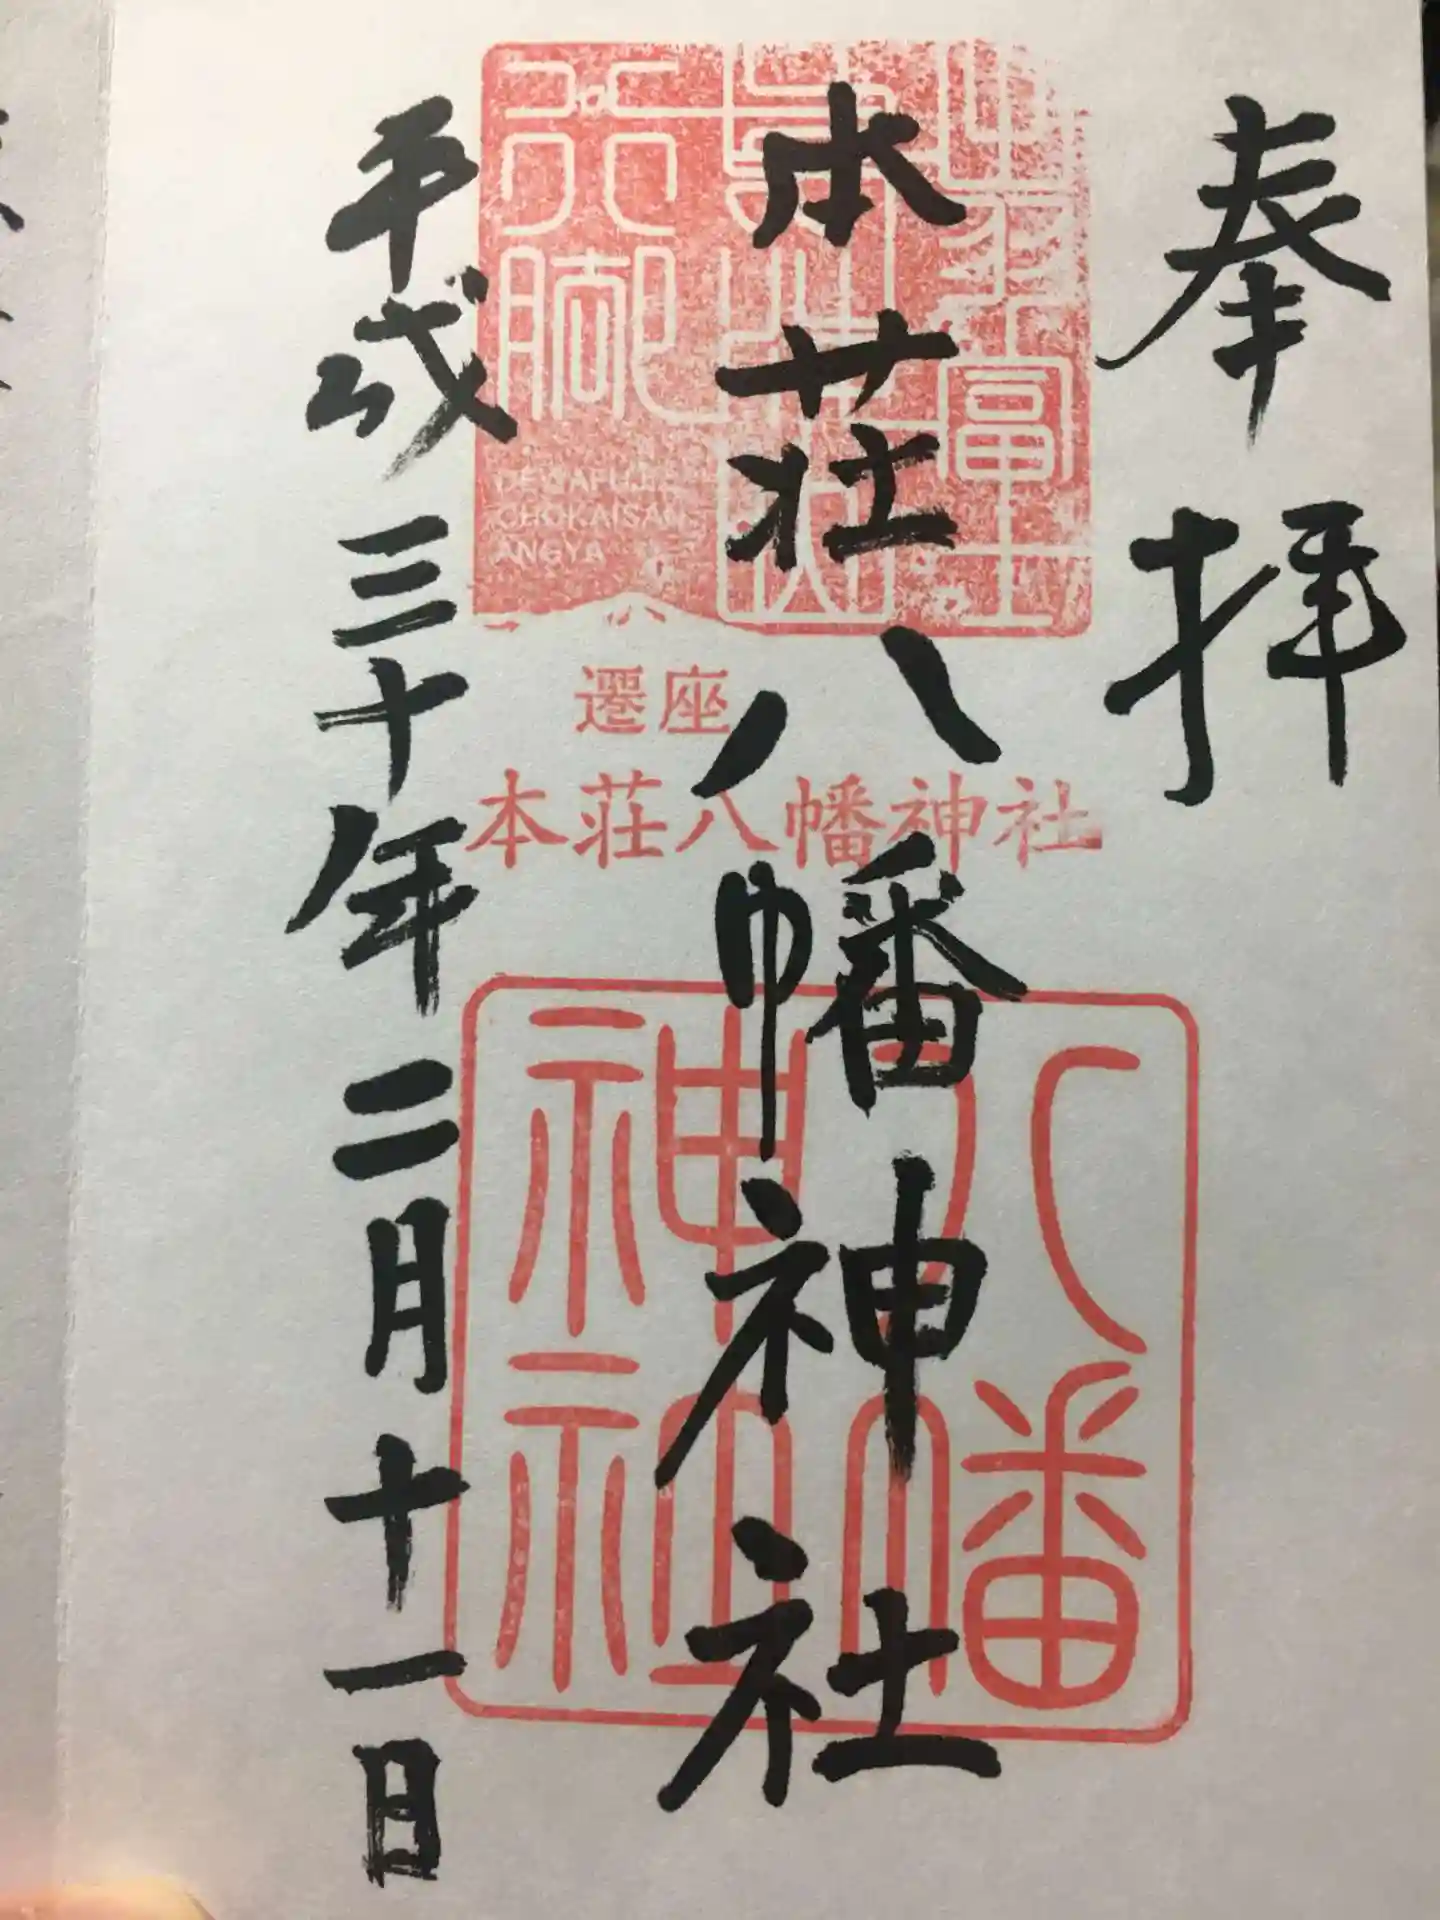 奉拝
本荘八幡神社
平成三十年二月十一日
出羽富士
鳥海山
行脚
DEWAFUJI
CHOKAISAN
ANGYA
遷座
本荘八幡神社
八幡
神社